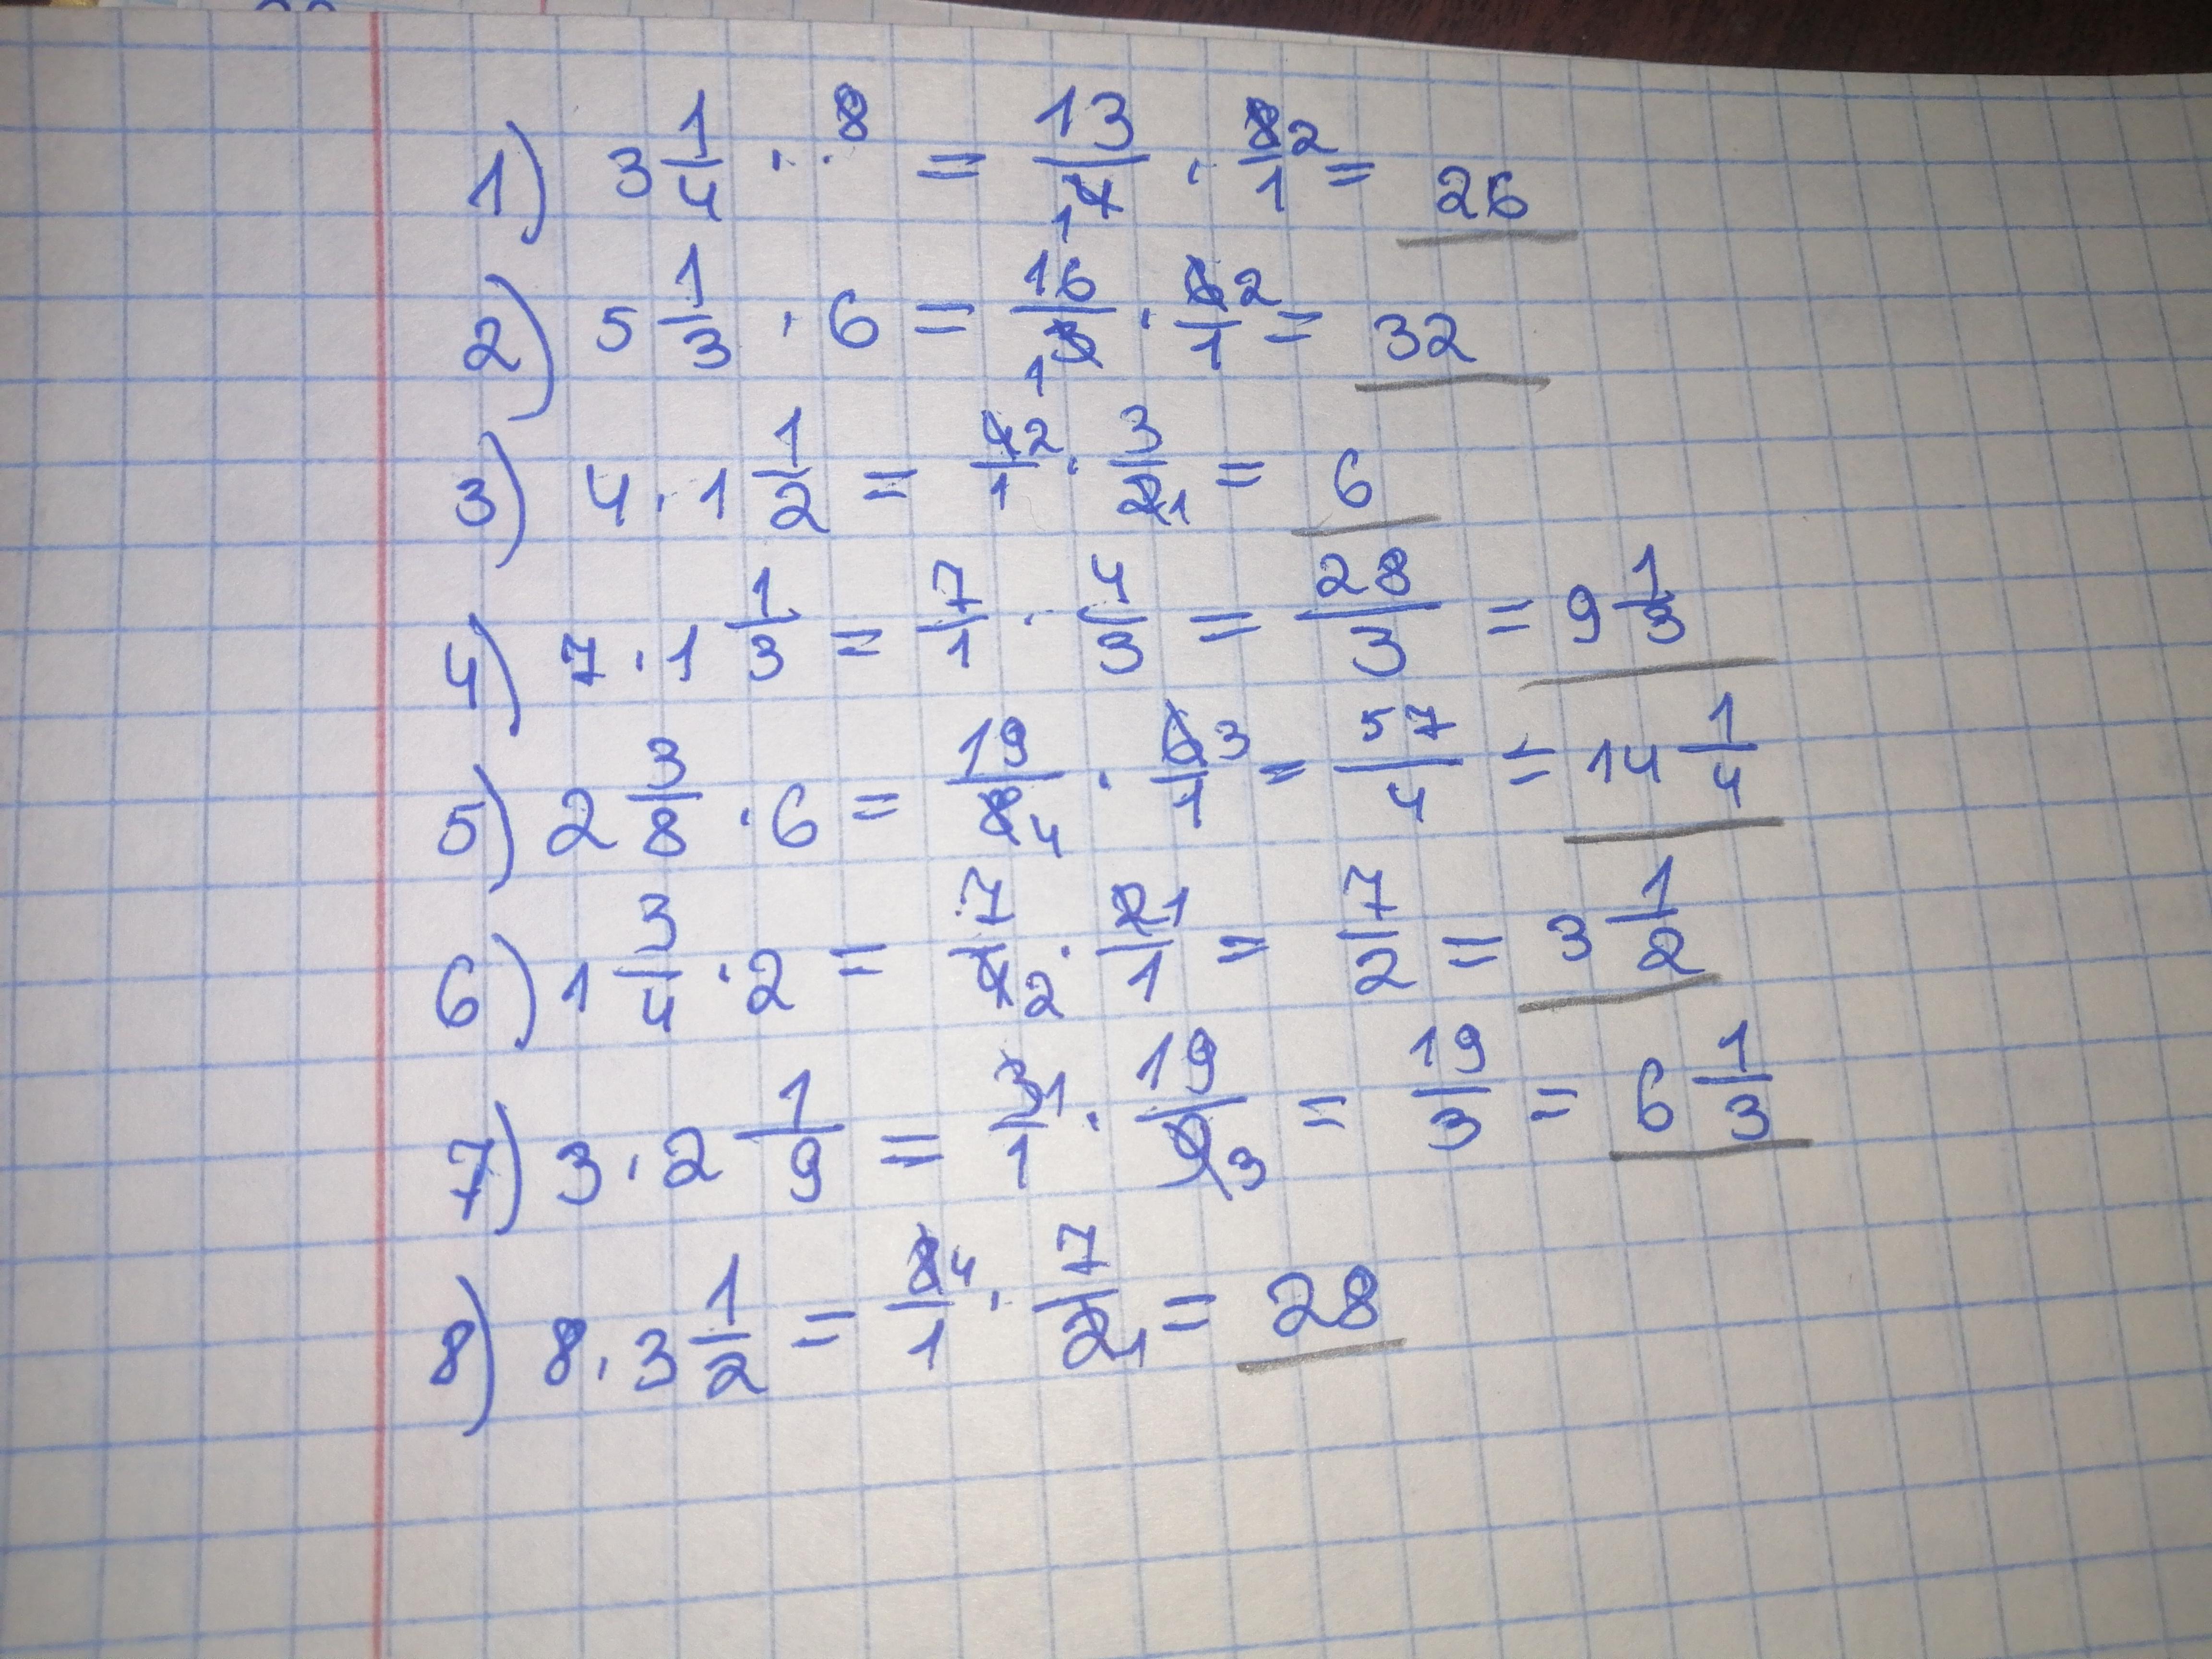 1) 3 1/4 · 8 = 13/4 1 · 8/1 2 = 26
2) 5 1/3 · 6 = 16/3 1 · 6/1 2 = 32
3) 4 · 1 1/2 = 4/1 2 · 3/2 1 = 6
4) 7 · 1 1/3 = 7/1 · 4/3 = 28/3 = 9 1/3
5) 2 3/8 · 6 = 19/8 4 · 6/1 3 = 57/4 = 14 1/4
6) 1 3/4 · 2 = 7/4 2 · 2/1 1 = 7/2 = 3 1/2
7) 3 · 2 1/9 = 3/1 1 · 19/9 3 = 19/3 = 6 1/3
8) 8 · 3 1/2 = 8/1 4 · 7/2 1 = 28